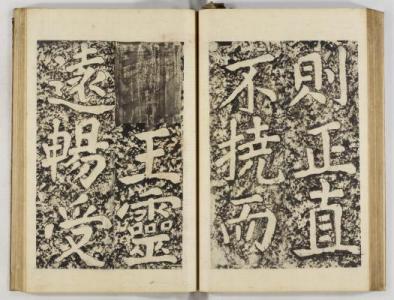 則正直
不撓而
王靈
遠暢受